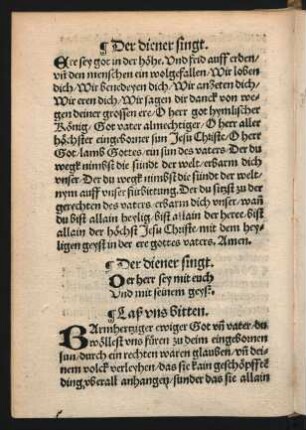 ¶ Der diener singt.
Ere sey got in der höhe. Vnd frid auff erden/
vñ den menschen ein wolgefallen/ Wir loben
dich/ Wir benedeyen dich/ Wir anbeten dich/
Wir eren dich/ Wir sagen dir danck von we-
gen deiner grossen ere/ O herr got hymlischer
König/ Got vater almechtiger/ O herr aller
höchster eingeborner sun Jesu Christe/ O herr
Got/ lamb Gottes/ ein sun des vaters/ Der du
wegk nimbst die sündt der welt/ erbarm dich
vnser/ Der du wegk nimbst die sündt der welt/
nym auff vnser fürbittung. Der du sitzst zu der
gerechten des vaters/ erbarm dich vnser/ wañ
du bist allain heylig/ bist allain der herre/ bist
allain der höchst Jesu Christe/ mit dem hey-
ligen geyst in der ere gottes vaters. Amen.
¶ Der diener singt.
Der herr sey mit euch
Vnd mit seinem geyst.
¶ Laß vns bitten.
BArmhertziger ewiger Got vñ vater/ du
wöllest vns füren zu deim eingebornen
sun/ durch ein rechten waren glauben/ vñ dei-
nem volck verleyhen/ das sie kain geschöpff
ding/ vberall anhangen/ sunder das sie allain